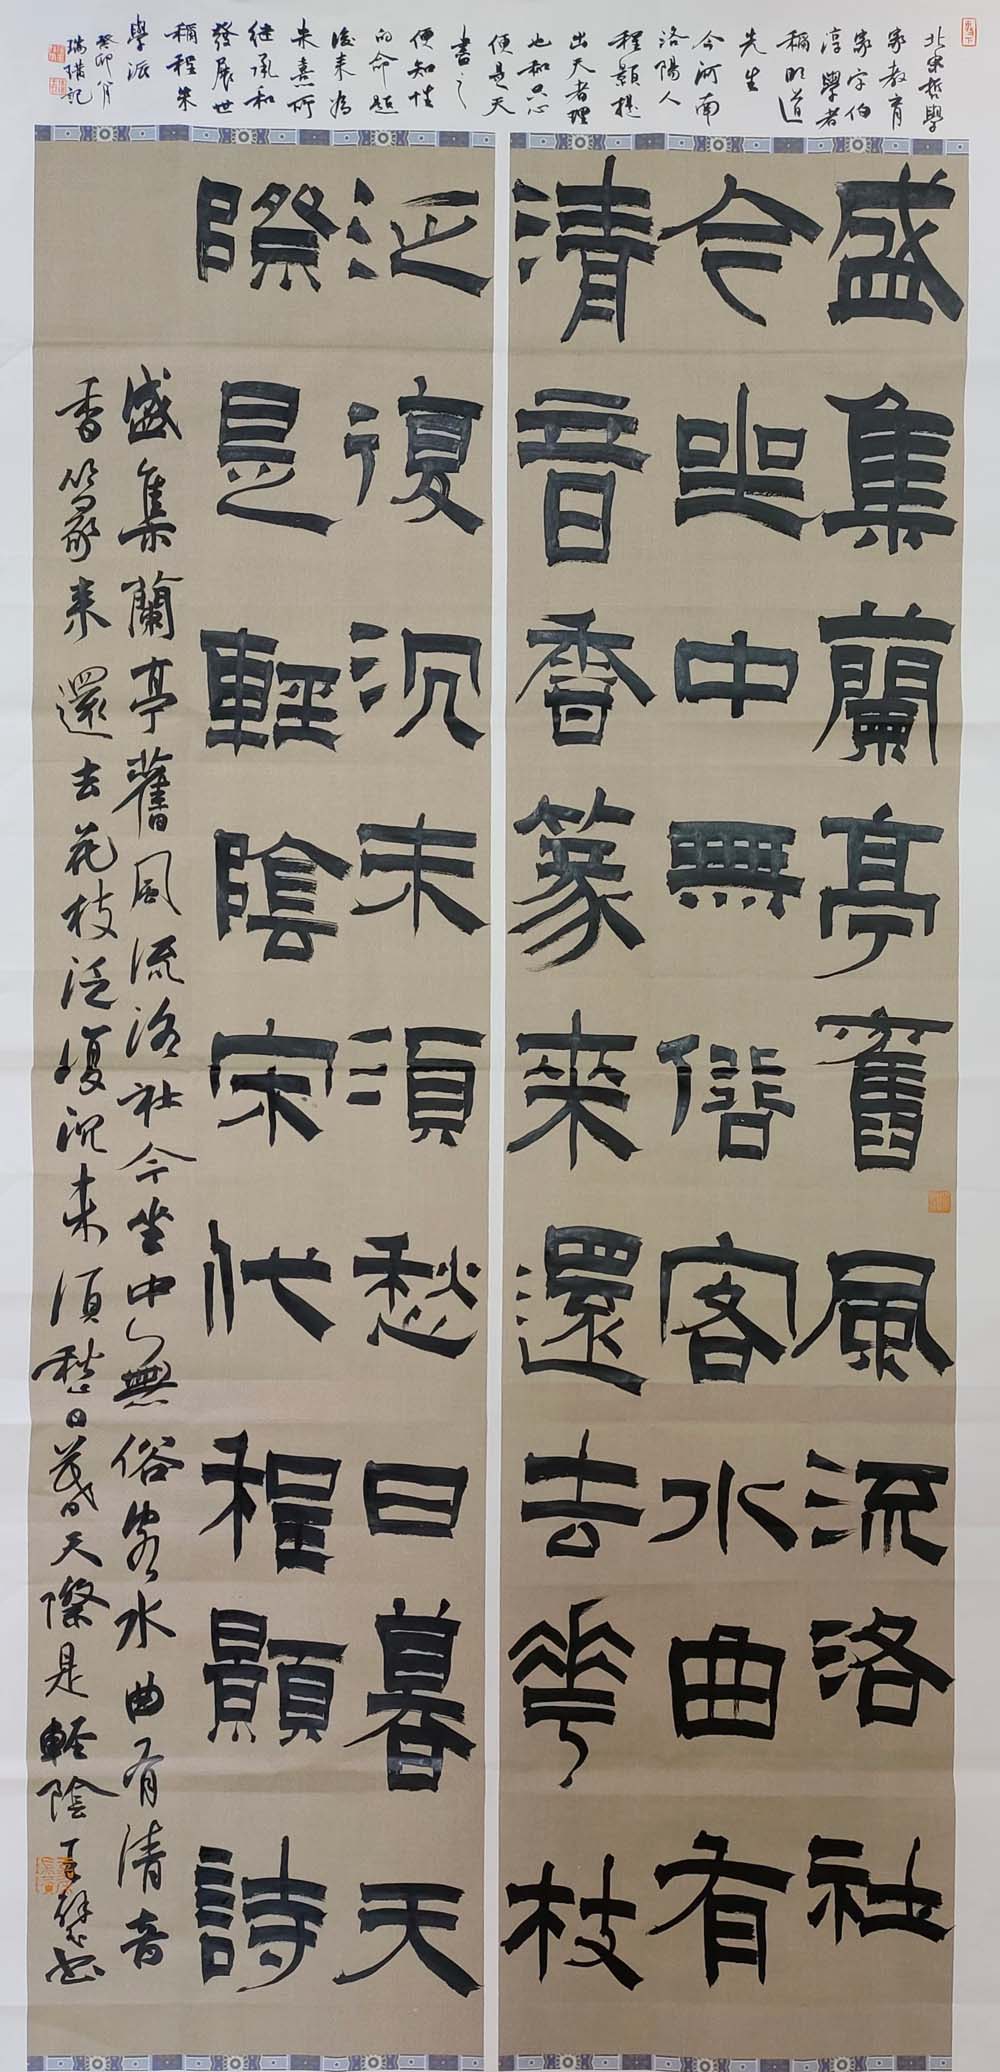 北宋哲學
家教育
家字伯
淳學者
稱明道
先生
今河南
洛陽人
程顥提
出天者理
也和只心
便是天
書之
便知性
的命題
後来為
朱熹所
继承和
發展世
稱程朱
學派
癸卯八月
瑞璞記
盛集蘭亭舊風流洛社
今坐中無俗客水曲有
清音香篆来還去花枝
泛復沉未須愁日暮天
際是輕陰宋代程顥詩
盛集蘭亭舊風流洛社今坐中無俗客水曲有清音
香篆来還去花枝泛復沉未須愁日暮天際是輕陰